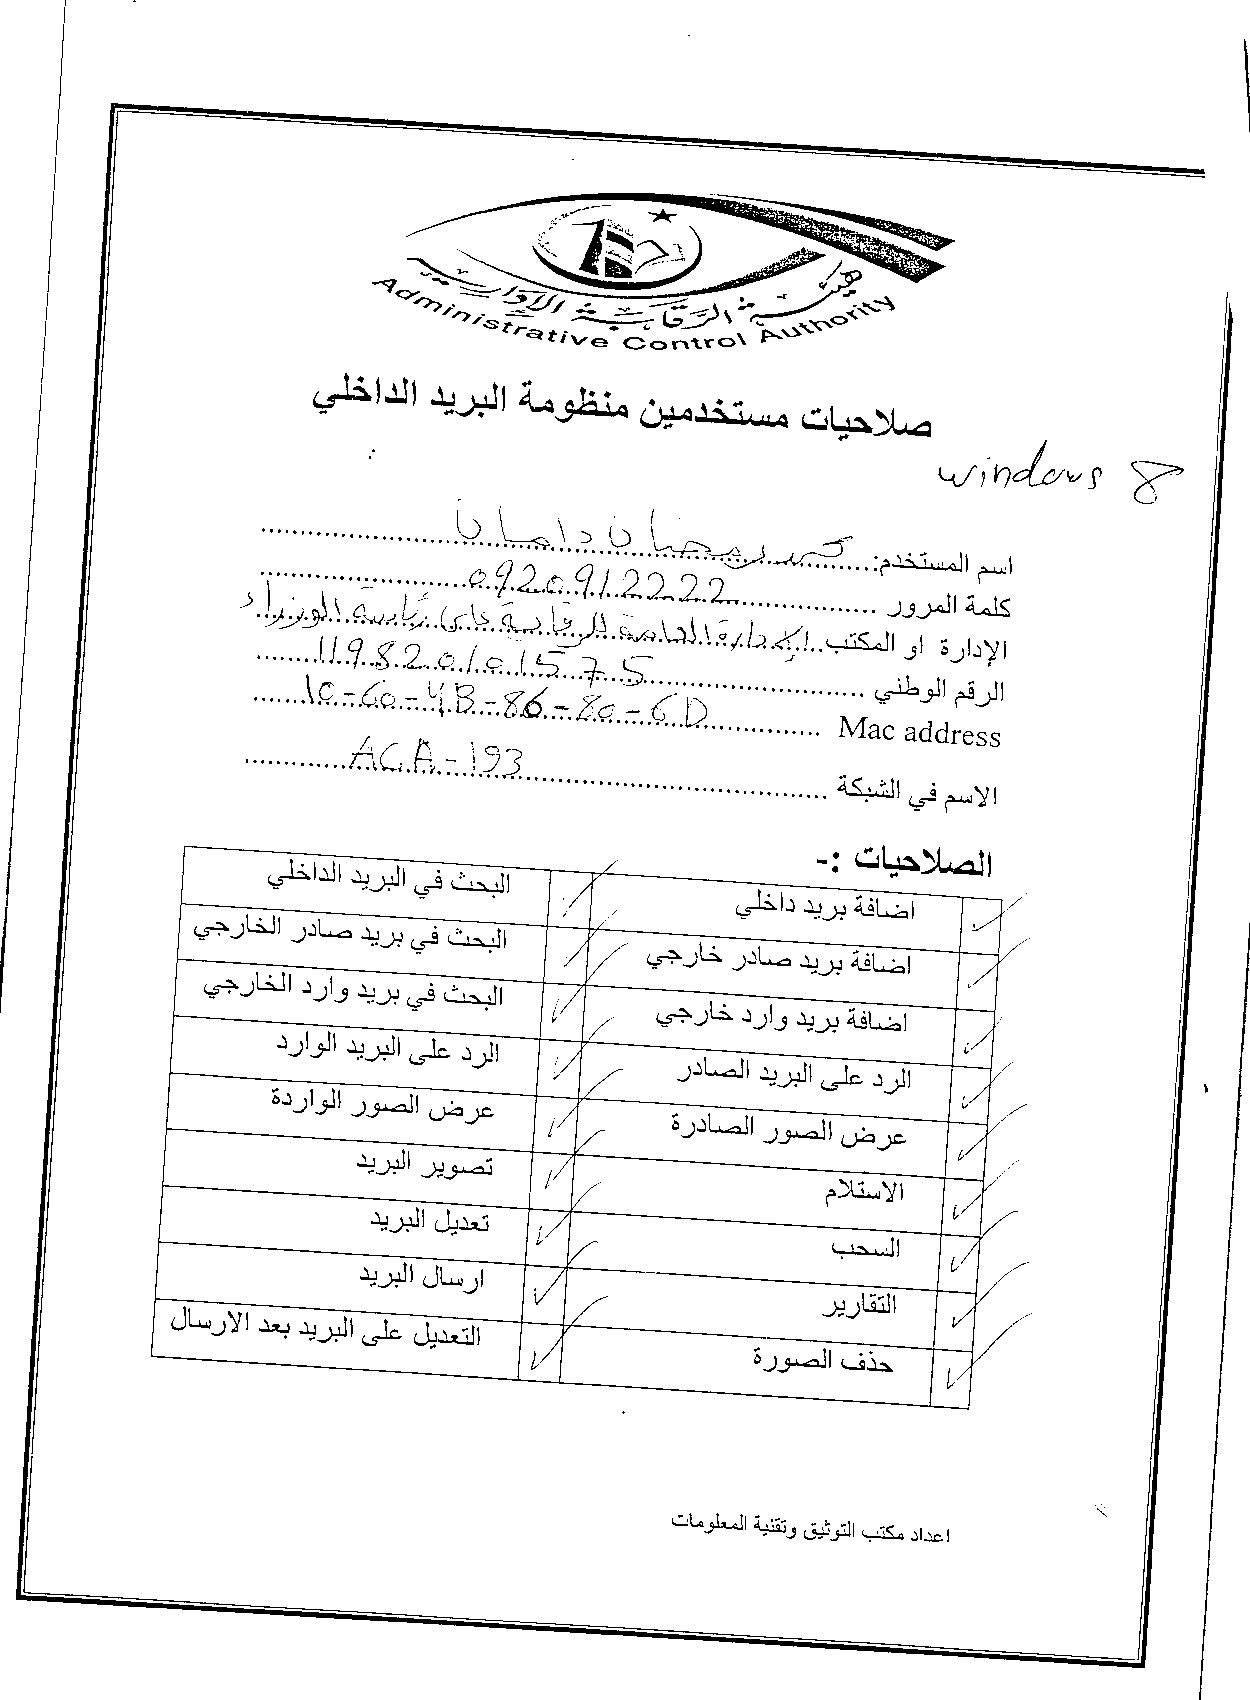 هيئة الرقابة الإدارية
Administrative Control Authority
صلاحيات مستخدمين منظومة البريد الداخلي
windows 8
اسم المستخدم: محمد رمضان دهان
كلمة المرور 0920912222
الإدارة او المكتب الإدارة العامة الرقابة على رئاسة الوزراء
الرقم الوطني 119820101575
Mac address 1C-60-4B-86-80-6D
الاسم في الشبكة ACA-193
الصلاحيات :-
اضافة بريد داخلي ✓ البحث في البريد الداخلي ✓
اضافة بريد صادر خارجي ✓ البحث في بريد صادر الخارجي ✓
اضافة بريد وارد خارجي ✓ البحث في بريد وارد الخارجي ✓
الرد على البريد الصادر ✓ الرد على البريد الوارد ✓
عرض الصور الصادرة ✓ عرض الصور الواردة ✓
الاستلام ✓ تصوير البريد ✓
السحب ✓ تعديل البريد ✓
التقارير ✓ ارسال البريد ✓
حذف الصورة ✓ التعديل على البريد بعد الارسال ✓
اعداد مكتب التوثيق وتقنية المعلومات